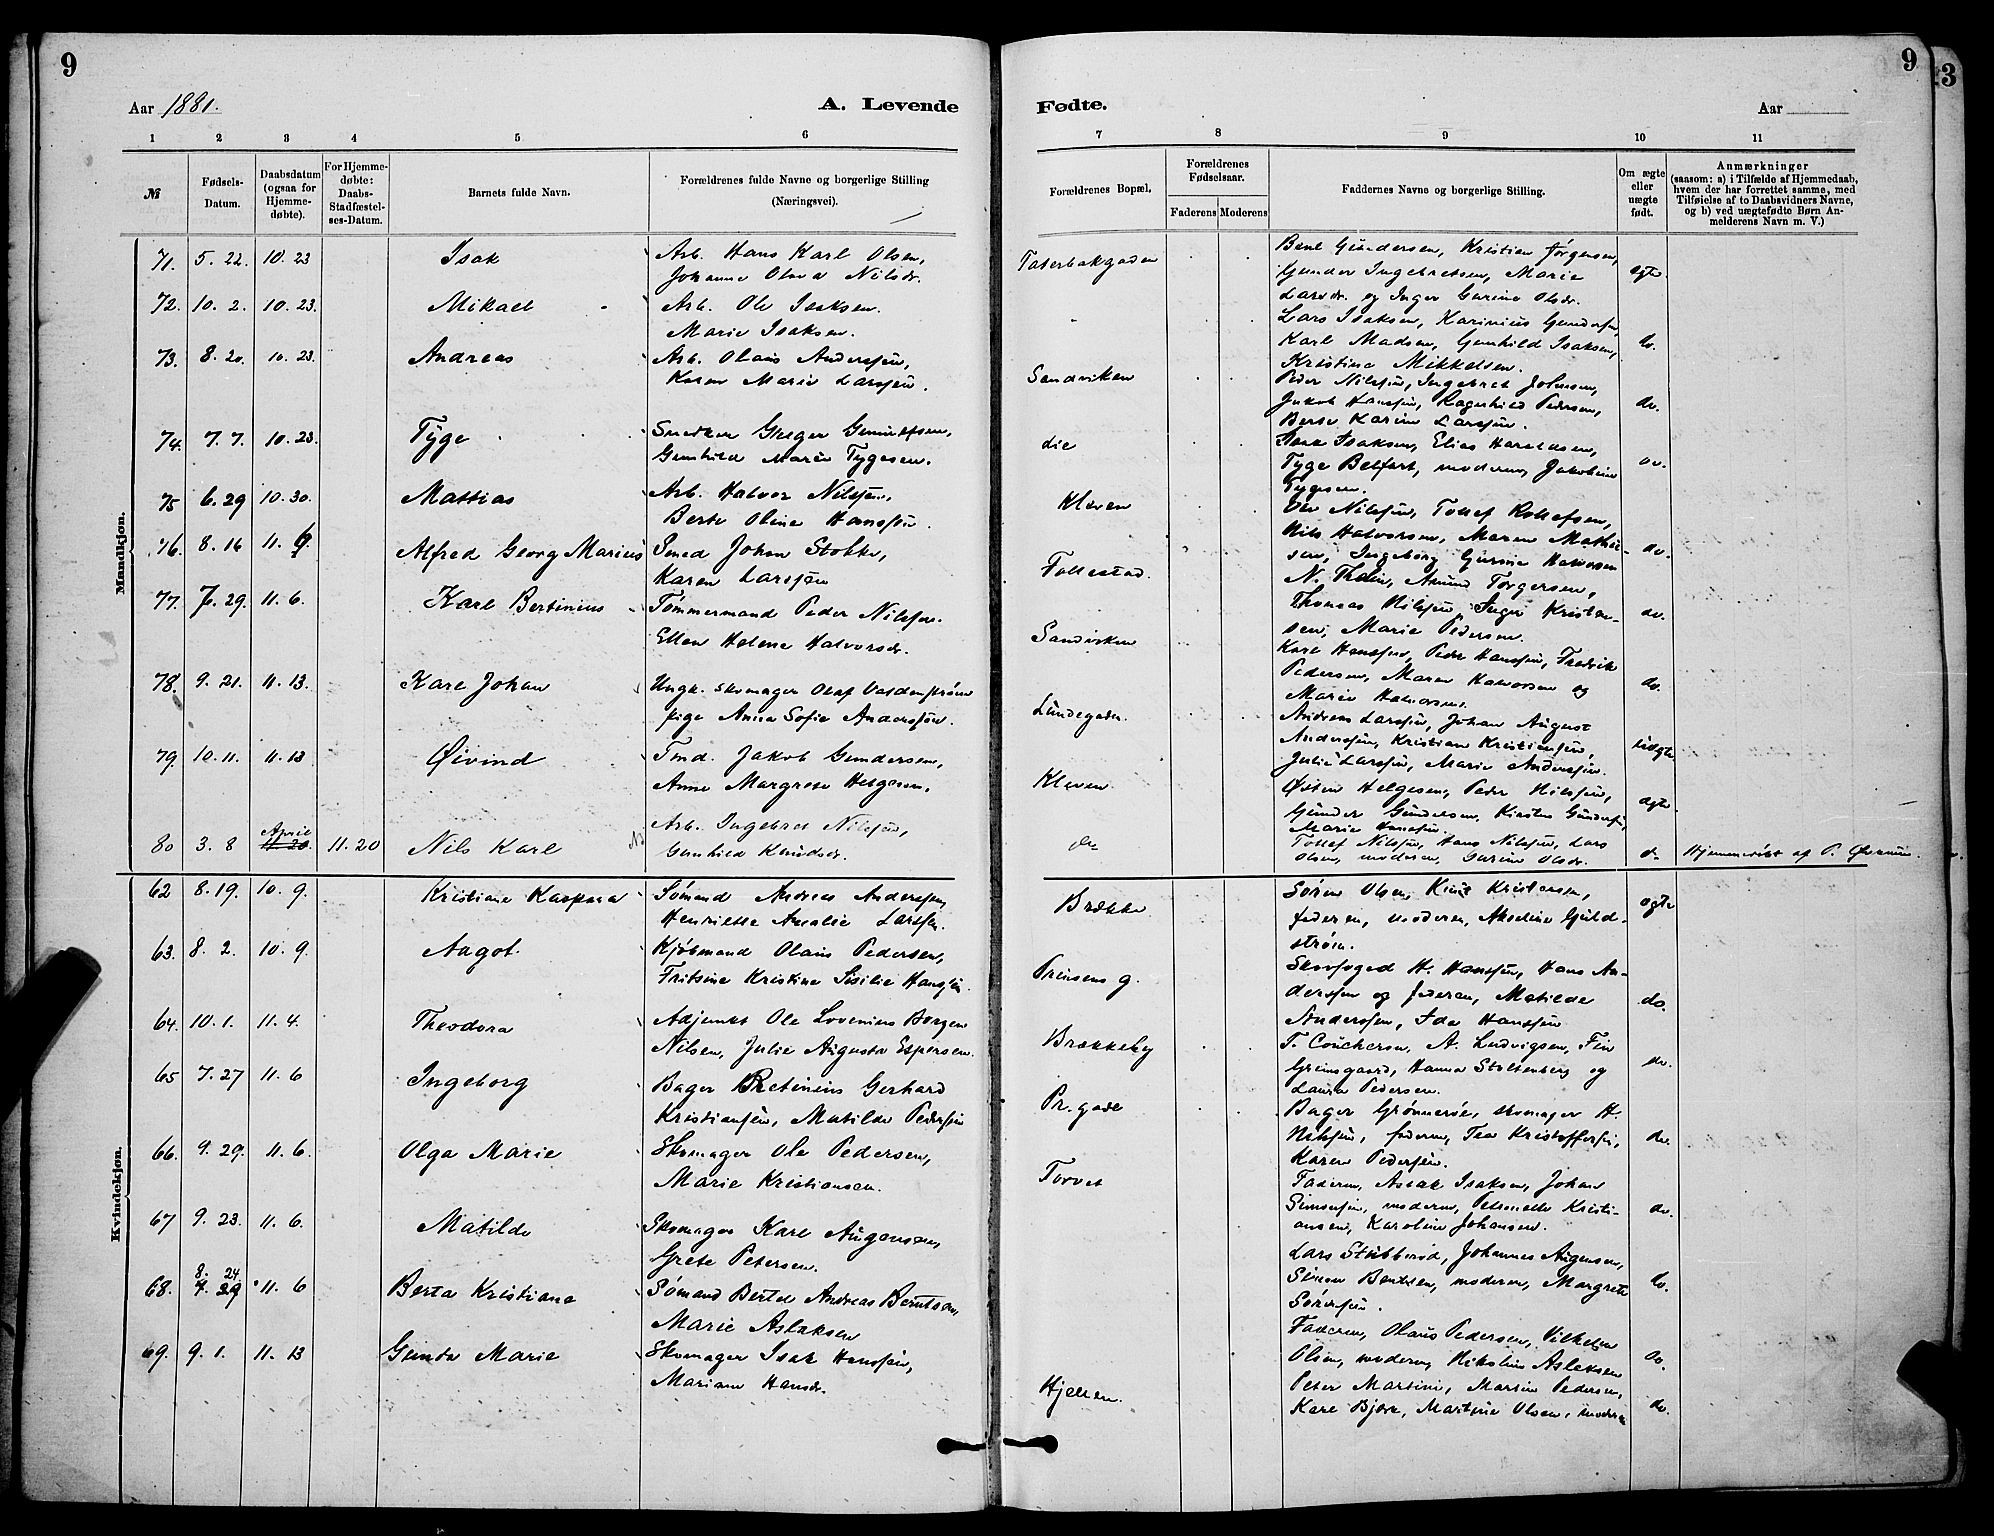 9
9
3
Aar 1881.
A. Levende
Fødte.
Aar
1 2 3 4 5 6 7 8 9 10 11
№
Fødsels-
Datum.
Daabsdatum
(ogsaa for
Hjemme-
døbte).
For Hjemme-
døbte:
Daabs-
Stadfæstel-
ses-Datum.
Barnets fulde Navn.
Forældrenes fulde Navne og borgerlige Stilling
(Næringsvei).
Forældrenes Bopæl.
Forældrenes
Fødselsaar.
Faderens Moderens
Faddernes Navne og borgerlige Stilling.
Om ægte
eller
uægte
født.
Anmærkninger
(saasom: a) i Tilfælde af Hjemmedaab,
hvem der har forrettet samme, med
Tilføielse af to Daabsvidners Navne,
og b) ved uægtefødte Børn An-
melderens Navn m. V.)
Mandkjøn.
71. 5. 22. 10. 23 Isak Arb. Hans Karl Olsen,
Johanne Olava Nilsdr.
Taterbakgaden
Gunder Ingebretsen, Marie
Larsdr. og Inger Gurine Olsdr.
ægte
72. 10. 2. 10. 23. Mikael Arb. Ole Isaksen.
Marie Isaksen.
Lars Isaksen, Karinius Gundersen,
Karl Madsen, Gunhild Isaksen,
Kristine Mikkelsen.
do.
73. 8. 20. 10. 23. Andreas Arb. Olaus Anderssen,
Karen Marie Larssen.
Sandviken
Peder Nilssen, Ingebret Johnsen,
Jakob Hanssen, Ragnhild Pedersen,
Berte Karine Larssen.
do.
74. 7. 7. 10. 23. Tyge Snedker Greger Gundersen,
Gunhild Marie Tygesen.
die
Isak Isaksen, Elias Haraldsen,
Tyge Belfart, moderen, Jakobine
Tygesen.
do.
75 6. 29 10. 30. Mattias Arb. Halvor Nilssen,
Berte Oline Hanssen.
Kleven
Ole Nilssen, Tollef Rollefsen,
Nils Halvorsen, Maren Mathi-
sen, Ingeborg Gurine Halvorsen
do.
76. 8. 16 11. 6. Alfred Georg Marius Smed Johan Stokke,
Karen Larssen
Follestad.
N. Tholin, Amund Torgersen,
Thomas Nilssen, Inger Kristen-
sen, Marie Pedersen.
do.
77. 7. 29. 11. 6. Karl Bertinius Tømmermand Peder Nilssen.
Ellen Helene Halvorsdr.
Sandviken
Karl Hanssen, Peder Hanssen, Fredrik
Pedersen, Maren Halvorsen og
Marie Halvorsen.
do.
78. 9. 21. 11. 13. Karl Johan Ungk. skomager Olaf Valdenstrøm
pige Anna Sofie Anderssen.
Lundegaden.
Andreas Larssen, Johan August
Anderssen, Kristian Kristiansen,
Julie Larssen, Marie Anderssen.
uægte
79. 10. 11. 11. 13 Øivind Tmd. Jakob Gundersen,
Anne Margrete Helgesen.
Kleven
Østen Helgesen, Peder Nilssen,
Gunder Gundersen, Kirsten Gundersen,
Marie Hanssen.
ægte
80 3. 8 April 11. 20. 11. 20 Nils Karl Arb. Ingebret Nilssen,
Gunhild Knudsdr.
do
Tollef Nilssen, Hans Nilssen, Lars
Olsen, moderen, Gurine Olsdr.
do
Hjemmedøbt af P.
Kvindekjøn.
62 8. 19. 10. 9. Kristiane Kaspara Sømand Andreas Anderssen,
Henriette Amalie Larssen.
Brække
Søren Olsen, Knut Kristensen,
faderen, moderen, Akseline Guld-
strøm.
ægte
63. 8. 2. 10. 9. Aagot. Kjøbmand Olaus Pedersen,
Fritsine Kristine Sesilie Hanssen.
Prinsens g.
Skovfoged H. Hanssen, Hans An-
derssen og faderen, Matilde
Anderssen, Ida Hanssen
do
64. 10. 1. 11. 4. Theodora Adjunkt Ole Lovenius Borgen
Nilsen, Julie Augusta Espersen.
Brækkeby
T. Coucheron, A. Ludvigsen, Fin
Grimsgaard, Hanna Stoltenberg og
Laura Pedersen.
do.
65 7. 27 11. 6 Ingeborg Bager Bretinius Gerhard
Kristiansen, Matilde Pedersen
Pr. gade
Bager Grønnerøe, skomager H.
Nilssen, faderen, Tea Kristoffersen,
Karen Pedersen.
do.
66. 9. 29. 11. 6. Olga Marie Skomager Ole Pedersen,
Marie Kristiansen.
Torvet
Faderen, Aslak Isaksen, Johan
Simonsen, moderen, Petronelle Kristi-
ansen, Karoline Johansen.
do.
67 9. 23. 11. 6. Matilde Skomager Karl Augensen,
Grete Petersen.
Lars Stubberød, Johannes Augensen,
Simon Bentsen, moderen, Margrete
Sørensen.
do.
68. 8. 24. 7. 29 11. 6 Berta Kristiane Sømand Bertel Andreas Berntsen,
Marie Aslaksen
Faderen, Olaus Pedersen, Vilhelm
Olsen, moderen, Nikoline Aslaksen
do.
69. 9. 1. 11. 13 Gunda Marie Skomager Isak Hanssen,
Mariane Hansdr.
Hjellen.
Peter Martini, Martin Pedersen,
Karl Bjørk, Martine Olsen, moderen
do.